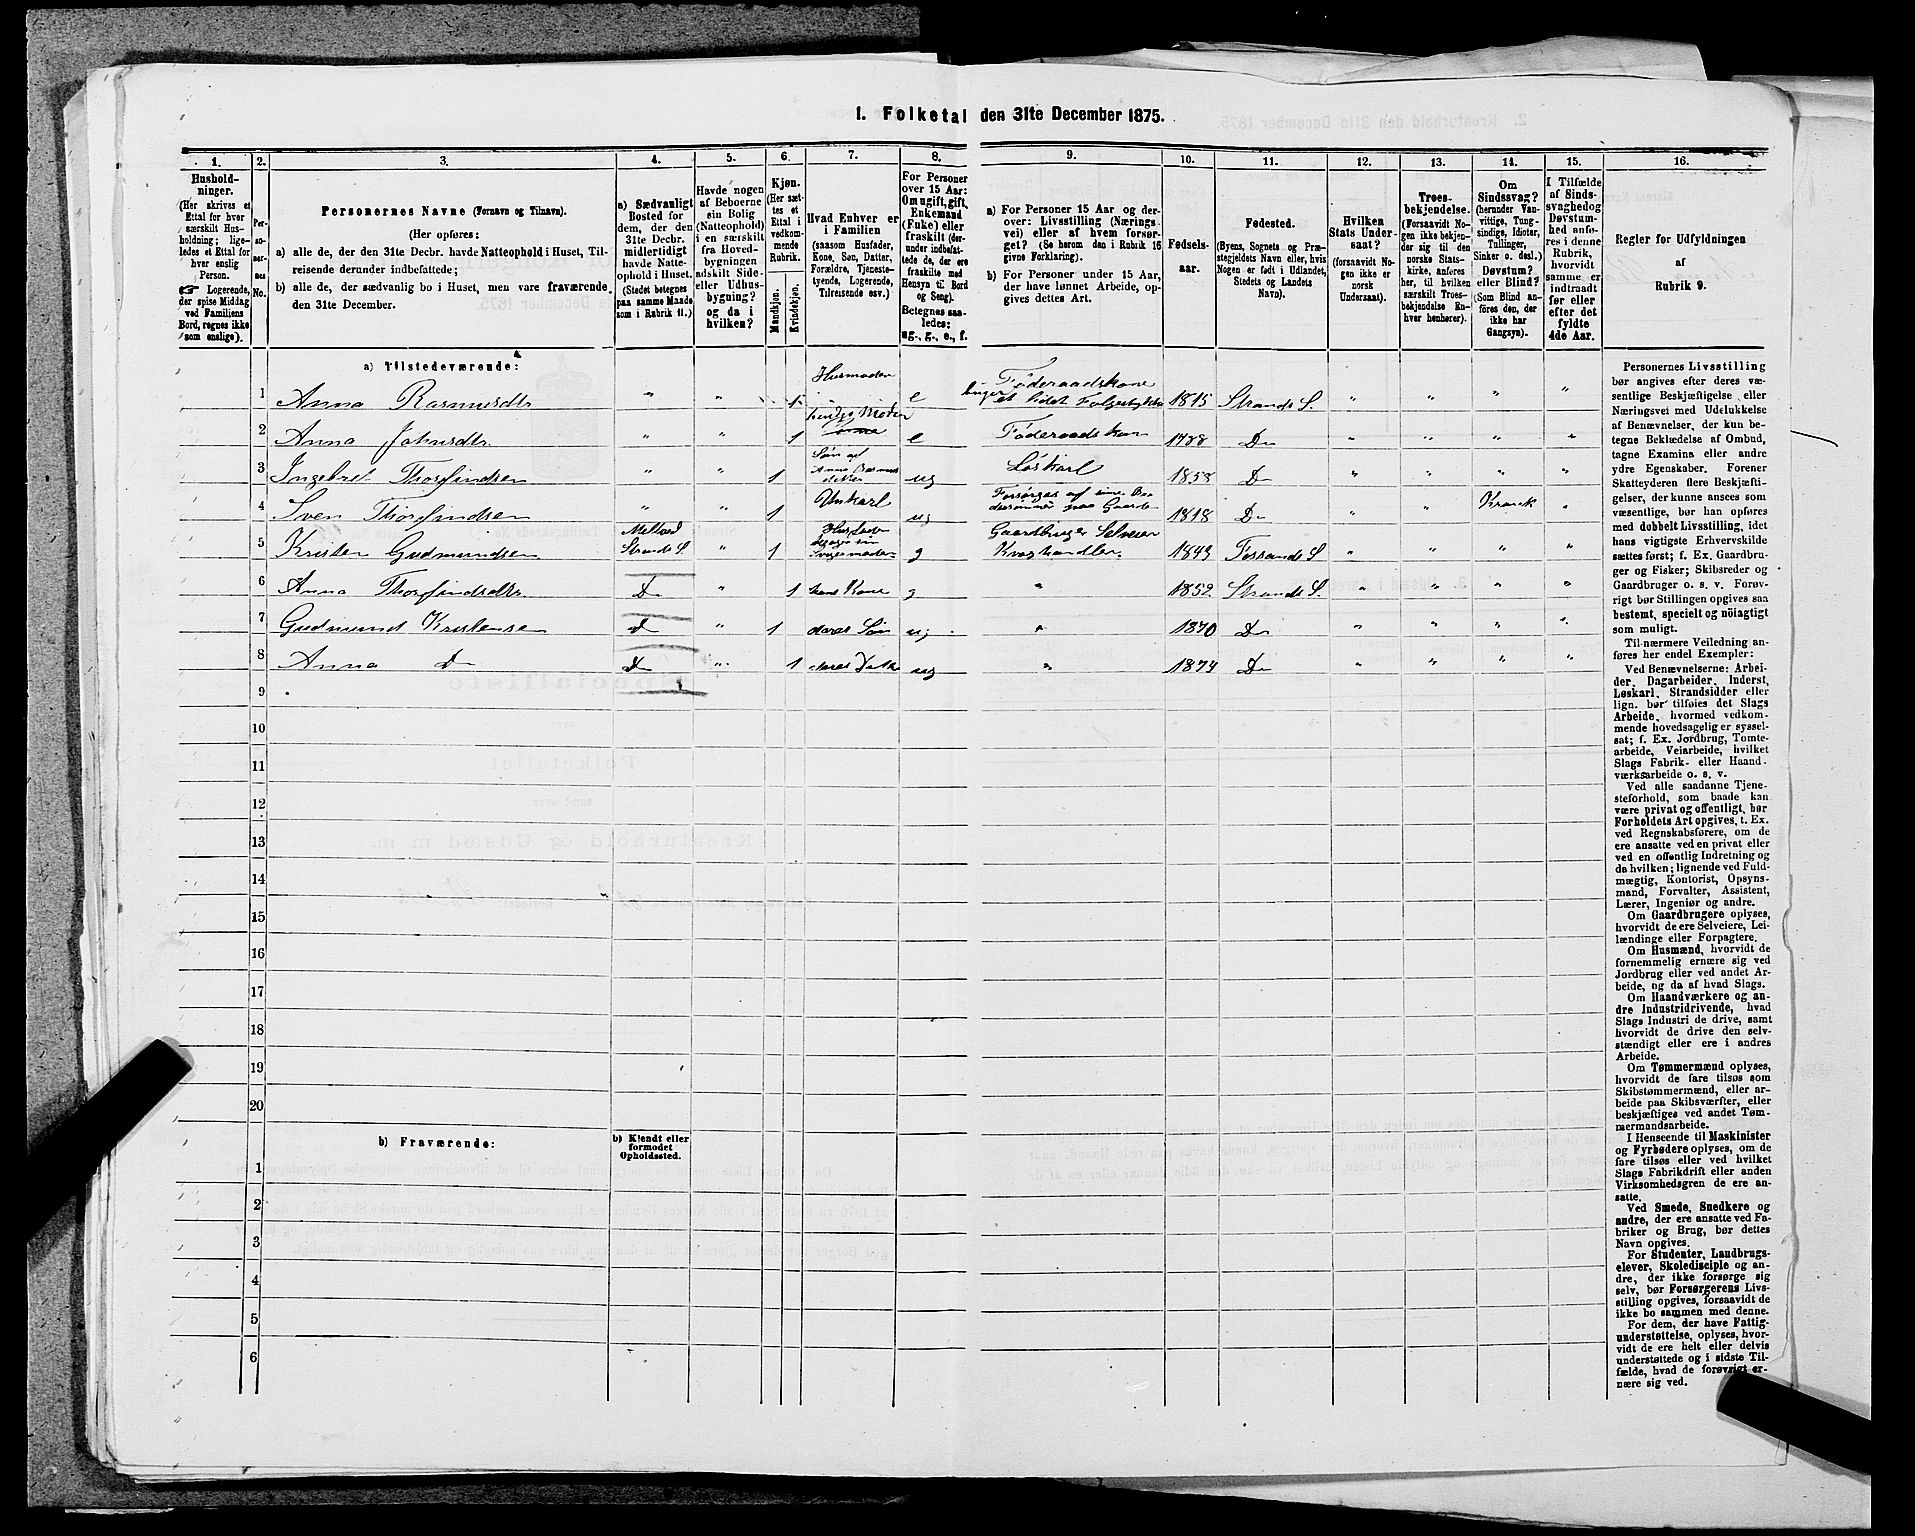 1. Folketal den 31te December 1875.
1.
2.
3.
4.
5.
6.
7.
8.
9.
10.
11.
12.
13.
14.
15.
16.
Hushold-
ninger.
(Her skrives et
Ettal for hver
særskilt Hus-
holdning; lige-
ledes et Ettal for
hver enslig
Person.
☞ Logerende,
der spise Middag
ved Familiens
Bord, regnes ikke
som enslige).
Per-
so-
ner-
nes
No.
Personernes Navne (Fornavn og Tilnavn).
(Her opføres:
a) alle de, der den 31te Decbr. havde Natteophold i Huset, Til-
reisende derunder indbefattede;
b) alle de, der sædvanlig bo i Huset, men vare fraværende
den 31te December.
a) Sædvanligt
Bosted for
dem, der den
31te Decbr.
midlertidigt
havde Natte-
ophold i Huset.
(Stedet betegnes
paa samme Maade
som i Rubrik 11.)
Havde nogen
af Beboerne
sin Bolig
(Natteophold)
i en særskilt
fra Hoved-
bygningen
adskilt Side-
eller Udhus-
bygning?
og da i
hvilken?
Kjøn.
(Her sæt-
tes et
Ettal i
vedkom-
mende
Rubrik.
Mandkjøn.
Kvindekjøn.
Hvad Enhver er
i Familien
(saasom Husfader,
Kone, Søn, Datter,
Forældre, Tjeneste-
tyende, Logerende,
Tilreisende osv.)
For Personer
over 15 Aar:
Om ugift, gift,
Enkemand
(Enke) eller
fraskilt (der-
under indbefat-
tede de, der ere
fraskilte med
Hensyn til Bord
og Seng).
Betegnes saa-
ledes:
ug., g., e., f.
a) For Personer 15 Aar og der-
over: Livsstilling (Nærings-
vei) eller af hvem forsør-
get? (Se herom den i Rubrik 16
givne Forklaring).
b) For Personer under 15 Aar,
der have lønnet Arbeide, op-
gives dettes Art.
Fødsels-
aar.
Fødested.
(Byens, Sognets og Præ-
stegjeldets Navn eller, hvis
Nogen er født i Udlandet,
Stedets og Landets
Navn).
Hvilken
Stats Under-
saat?
(forsaavidt No-
gen ikke er
norsk
Undersaat).
Troes-
bekjendelse.
(Forsaavidt No-
gen ikke bekjen-
der sig til den
norske Stats-
kirke, anføres
her, til hvilken
særskilt Troes-
bekjendelse En-
hver henhører).
Om
Sindssvag?
(herunder Van-
vittige, Tung-
sindige, Idioter,
Tullinger,
Sinker o. desl.)
Døvstum?
eller Blind?
(Som Blind an-
føres den, der
ikke har
Gangsyn).
I Tilfælde
af Sinds-
svaghed og
Døvstum-
hed anfø-
res i denne
Rubrik,
hvorvidt
samme er
indtraadt
før eller
efter det
fyldte
4de Aar.
Regler for Udfyldningen
af
Rubrik 9.
a) Tilstedeværende:
1 Anna Rasmusdtr " " 1 Husmoder e Føderaadskone bruger et lidet Følgestykke 1815 Strands S. " " " "
2 Anna Johnsdtr. " " 1 Moder e Føderaadskone 1788 Do " " " "
3 Ingebret Thorfindsen " " 1 Søn af Anna Rasmusdatter ug Løskarl 1858 Do " " " "
4 Sven Thorfindsen " " 1 ug Forsørges af sine paa Gaarden 1818 Do " " Krank "
5 Kristen Gudmundsen Meltved Strands S. " 1 Husfader besøger sin Svigermoder g Gaardbruger Selveier Kræghandler. 1843 Fossands S. " " " "
6 Anna Thorfindsdtr. Do " 1 hans Kone g " 1852 Strands S. " " " "
7 Gudmund Kristense Do " 1 deres Søn ug " 1870 Do " " " "
8 Anna Do Do " 1 deres Datter ug " 1874 Do " " " "
9
10
11
12
13
14
15
16
17
18
19
20
b) Fraværende:
b) Kjendt eller
formodet
Opholdssted.
1
2
3
4
5
6
Personernes Livsstilling
bør angives efter deres væ-
sentlige Beskjæftigelse eller
Næringsvei med Udelukkelse
af Benævnelser, der kun be-
tegne Beklædelse af Ombud,
tagne Examina eller andre
ydre Egenskaber. Forener
Skatteyderen flere Beskjæfti-
gelser, der kunne ansees som
væsentlige, bør han opføres
med dobbelt Livsstilling, idet
hans vigtigste Erhvervskilde
sættes først; f. Ex. Gaardbru-
ger og Fisker; Skibsreder og
Gaardbruger o. s. v. Forøv-
rigt bør Stillingen opgives saa
bestemt, specielt og nöiagtigt
som muligt.
Til nærmere Veiledning an-
føres her endel Exempler:
Ved Benævnelserne: Arbei-
der, Dagarbeider, Inderst,
Løskarl, Strandsidder eller
lign. bør tilføies det Slags
Arbeide, hvormed vedkom-
mende hovedsagelig er syssel-
sat; f. Ex. Jordbrug, Tomte-
arbeide, Veiarbeide, hvilket
Slags Fabrik- eller Haand-
værksarbeide o. s. v.
Ved alle saadanne Tjene-
steforhold, som baade kan
være privat og offentligt, bør
Forholdets Art opgives, t. Ex.
ved Regnskabsførere, om de
ere ansatte ved en privat eller
ved en offentlig Indretning og
da hvilken; lignende ved Fuld-
mægtig, Kontorist, Opsyns-
mand, Forvalter, Assistent,
Lærer, Ingeniør og andre.
Om Gaardbrugere oplyses,
hvorvidt de ere Selveiere, Lei-
lændinge eller Forpagtere.
Om Husmænd, hvorvidt de
fornemmelig ernære sig ved
Jordbrug eller ved andet Ar-
beide, og da af hvad Slags.
Om Haandværkere og an-
dre Industridrivende, hvad
Slags Industri de drive, samt
hvorvidt de drive den selv-
stændigt eller ere i andres
Arbeide.
Om Tømmermænd oplyses,
hvorvidt de fare tilsøs som
Skibstømmermænd, eller ar-
beide paa Skibsværfter, eller
beskjæftiges ved andet Tøm-
mermandsarbeide.
I Henseende til Maskinister
og Fyrbødere oplyses, om de
fare tilsøs eller ved hvilket
Slags Fabrikdrift eller anden
Virksomhedsgren de ere an-
satte.
Ved Smede, Snedkere og
andre, der ere ansatte ved Fa-
briker og Brug, bør dettes
Navn opgives.
For Studenter, Landbrugs-
elever, Skoledisciple og an-
dre, der ikke forsørge sig
selv, bør Forsørgerens Livs-
stilling opgives, forsaavidt de
ikke bo sammen med denne.
For dem, der have Fattig-
understøttelse, oplyses, hvor-
vidt de ere helt eller delvis
understøttede og i sidste Til-
fælde, hvad de forøvrigt er-
nære sig ved.